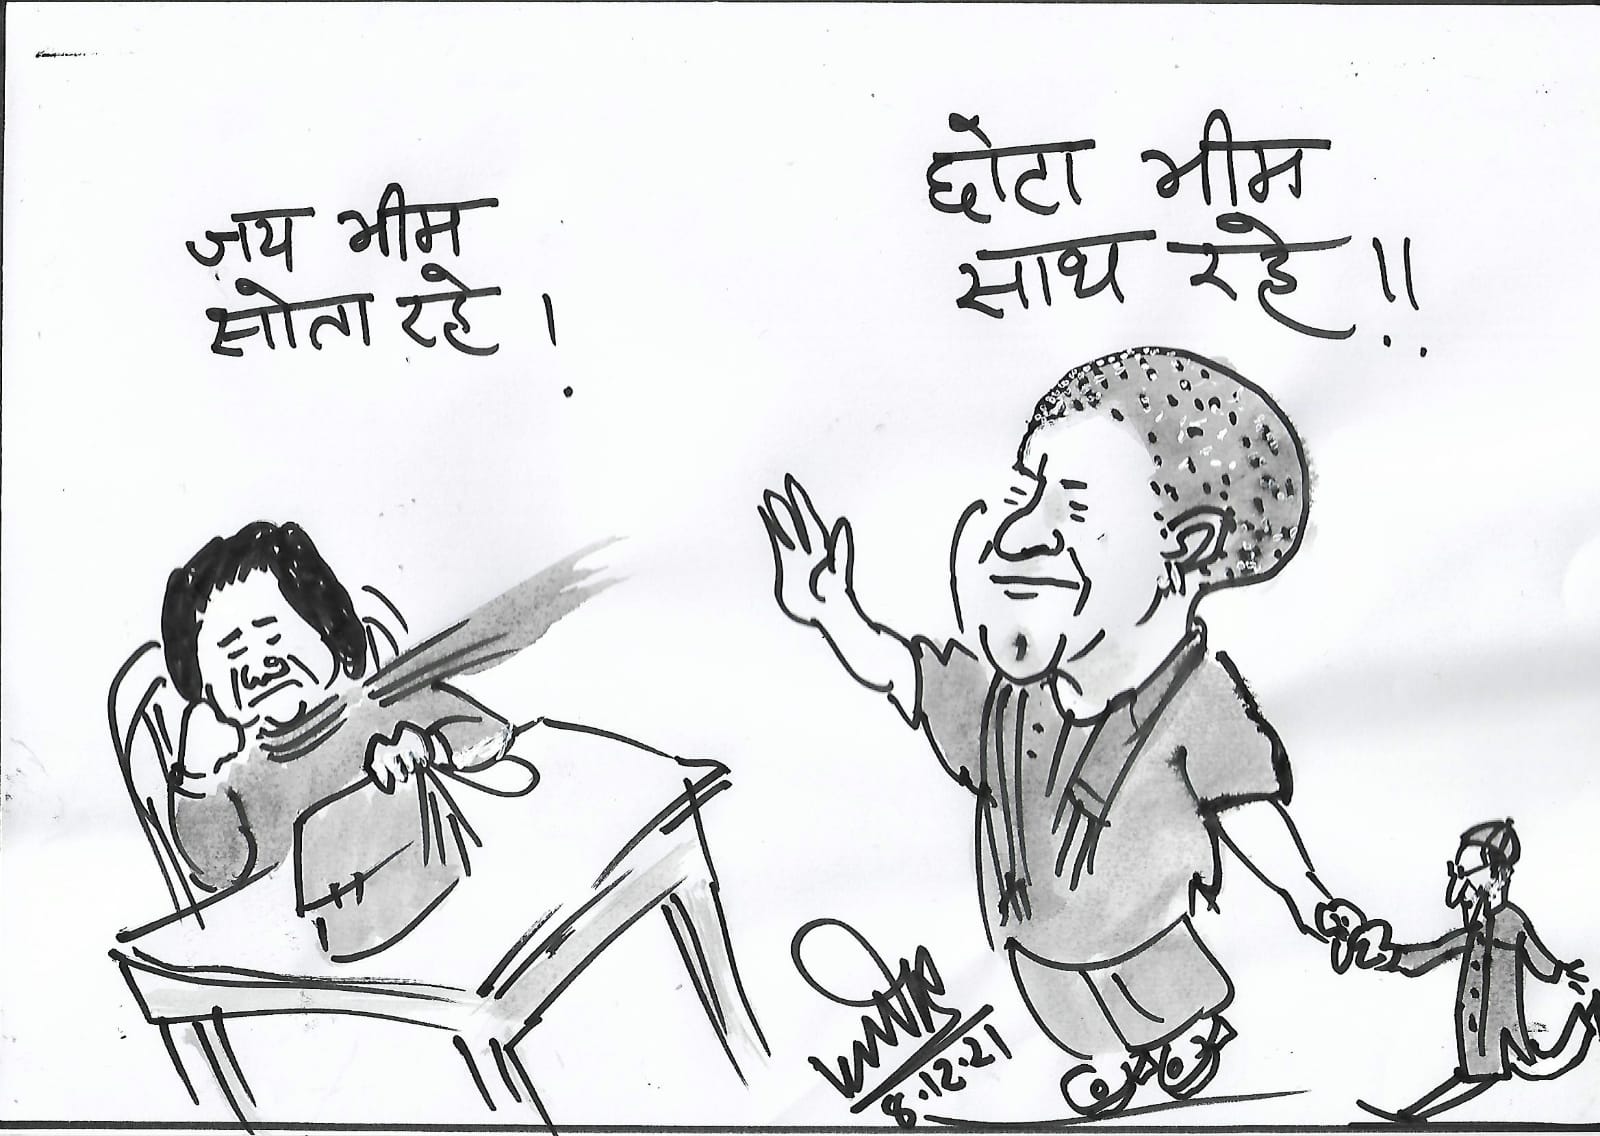 जय भीम
सोता रहे !
छोटा भीम
साथ रहे !!
8.12.21